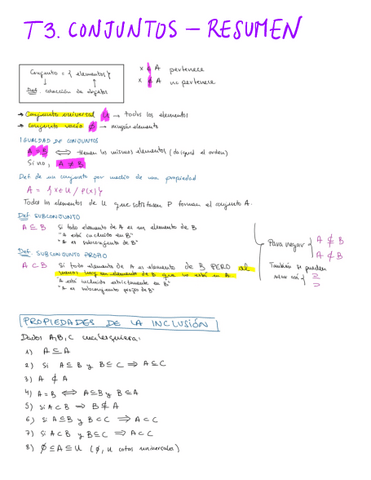 T3. CONJUNTOS – RESUMEN
Conjunto = { elementos }
Def colección de objetos
x ∈ A pertenece
x ∉ A no pertenece
→ Conjunto universal U → todos los elementos
→ Conjunto vacío ∅ → ningún elemento
IGUALDAD DE CONJUNTOS
A = B ⟺ tienen los mismos elementos (da igual el orden)
Si no, A ≠ B
Def de un conjunto por medio de una propiedad
A = { x ∈ U / P(x) }
Todos los elementos de U que satisfacen P forman el conjunto A.
Def SUBCONJUNTO
A ⊆ B Si todo elemento de A es un elemento de B
"A está incluido en B"
"A es subconjunto de B"
Def SUBCONJUNTO PROPIO
A ⊂ B Si todo elemento de A es elemento de B PERO al
menos hay un elemento de B que no está en A
"A está incluido estrictamente en B"
"A es subconjunto propio de B"
Para negar A ⊈ B
A ⊄ B
También se pueden
⊇
⊃
PROPIEDADES DE LA INCLUSIÓN
Dados A, B, C cualesquiera:
1) A ⊆ A
2) Si A ⊆ B y B ⊆ C ⟹ A ⊆ C
3) A ⊄ A
4) A = B ⟺ A ⊆ B y B ⊆ A
5) Si A ⊂ B ⟹ B ⊄ A
6) Si A ⊆ B y B ⊂ C ⟹ A ⊂ C
7) Si A ⊂ B y B ⊆ C ⟹ A ⊂ C
8) ∅ ⊆ A ⊆ U (∅, U conj. universal)